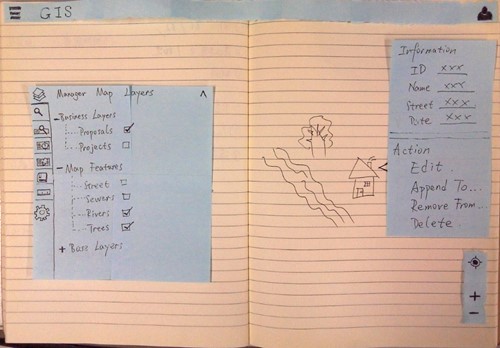 GIS
Manager Map Layers
Business Layers
Proposals
Projects
Map Features
Street
Sewers
Rivers
Trees
+ Base Layers
Information
ID xxx
Name xxx
Street xxx
Date xxx
Action
Edit..
Append To...
Remove From...
Delete